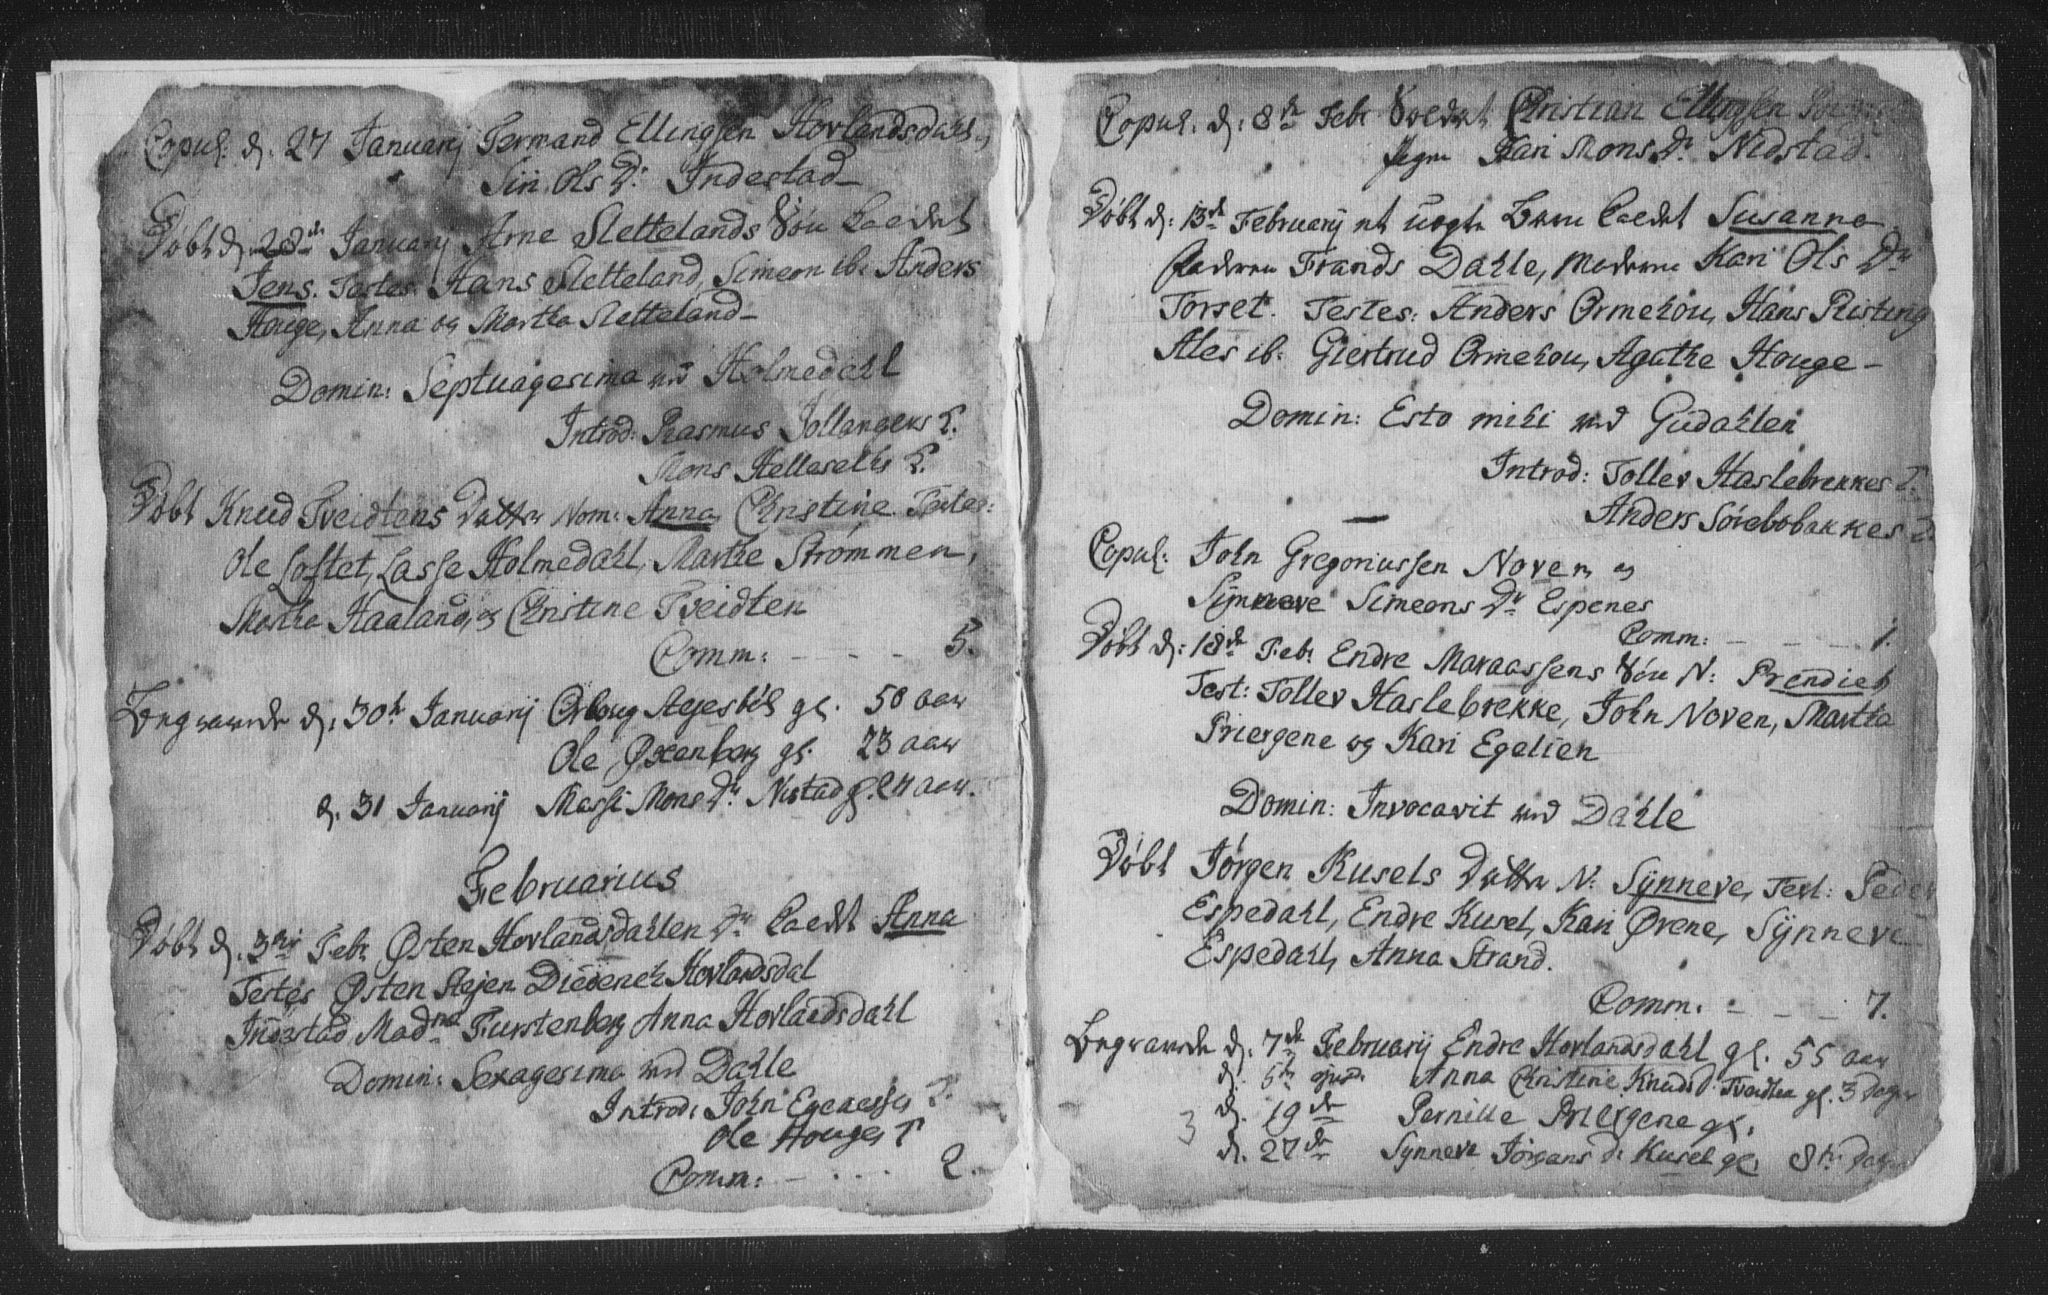 Copul: d. 27 Januarij Fermand Ellingssen Hovlandsdahl,
Siri Ols Dr Indestad
Døbt d. 28de Januarij Arne Slettelands Søn kaldet
Jens. Testes Hans Sletteland, Simeon ib: Anders
Houge, Anna og Martha Sletteland
Domin: Septuagesima ved Holmedahl
Introd: Rasmus Jollangers K.
Mons Hellesæths K.
Døbt Knud Tveidtens Datter Nom: Anna Christine Testes:
Ole Loftet, Lasse Holmedahl, Marthe Strømmen,
Martha Haaland, og Christine Tveidten
Comm: - - - 5.
Begravede d. 30te Januarij gl. 50 aar
Ole Øxenberg gl. 23 aar
d. 31 Januarij Massi Mons Dr Nistad gl. 24 aar.
Februarius
Døbt d. 3die Febr Østen Hovlandsdahlen Dr kaldt Anna
Testes Østen Diderich Hovlandsdal
Inderstad Madme Furstenberg Anna Hovlandsdahl
Domin: Sexagesima ved Dahle
Introd: John K.
Ole Houges K
Comm: - . . . 2.
Copul. d. 8de Febr Christian Ellingsen
Pigen Kari Mons Dr Nidstad.
Døbt d: 13de Februarij et uægte Barn kaldet Susanna
Faderen Frands Dahle, Moderen Kari Ols Dr
Torset. Testes: Anders Ormehou, Hans Risting
Ales ib: Giertrud Ormehou, Agathe Houge -
Domin: Esto mihi ved Gudahlen
Introd: Tollev Haslebrekkes K.
Anders Sørebøbakkes K.
Copul: John Gregoriussen Noven og
Synneve Simeons Dr Espenes
Comm: - - - 1.
Døbt d: 18de Febr Endre Maraassens Søn N: Prendich
Test: Tollev Haslebrekke, John Noven, Martha
Priergene og Kari Egelien
Domin: Invocavit ved Dahle
Døbt Jørgen Kusels Datter N: Synneve, Test: Peder
Espedahl, Endre Kusel, Kari Ørene, Synneve
Espedahl, Anna Strand.
Comm: - - - 7.
Begravede d. 7de Februarij Endre Hovlandsdahl gl. 55 aar
d. ejusd. Anna Christine Knuds d. Tveidten gl. 3 Dager
3 d. 19de Pernille Priergene gl.
d. 27de Synneve Jørgens d. Kusel gl. 8te Dag